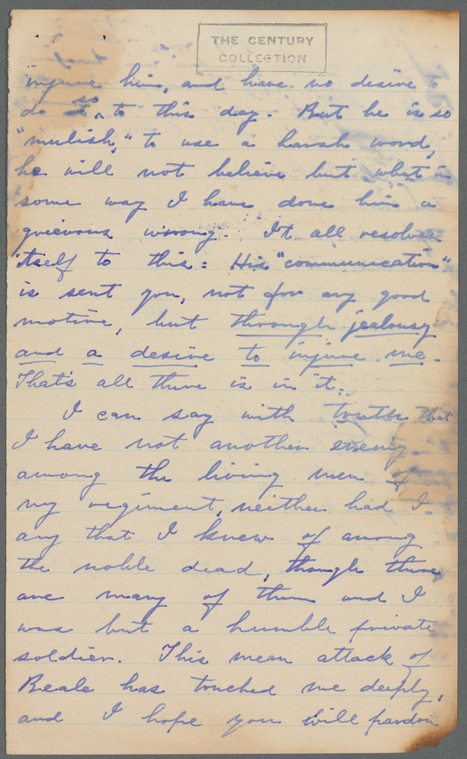 THE CENTURY
COLLECTION
injure him, and have no desire to
do so, to this day. But he is so
"mulish," to use a harsh word,
he will not believe but what in
some way I have done him a
grievous wrong. It all resolves
itself to this: His "communication"
is sent you, not for any good
motive, but through jealousy
and a desire to injure me.
That's all there is in it.
I can say with truth that
I have not another enemy
among the living men of
my regiment, neither had I
any that I knew of among
the noble dead, though there
are many of them and I
was but a humble private
soldier. This mean attack of
Beale has touched me deeply,
and I hope you will pardon